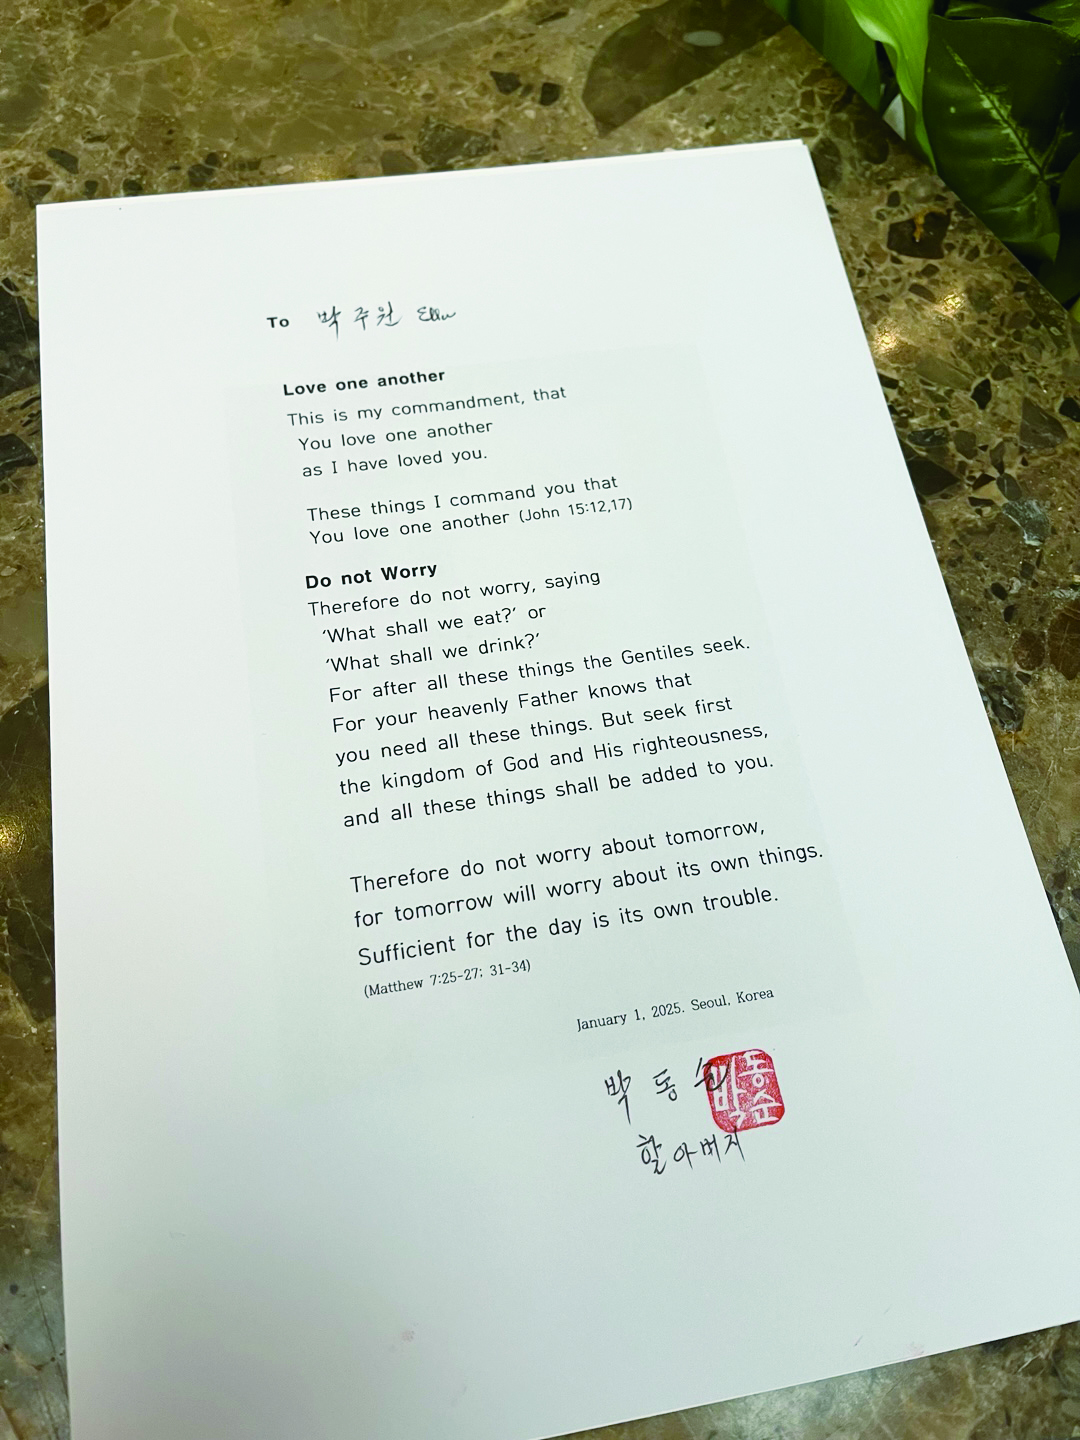 To 박주원 Ellie
Love one another
This is my commandment, that
You love one another
as I have loved you.
These things I command you that
You love one another (John 15:12,17)
Do not Worry
Therefore do not worry, saying
‘What shall we eat?’ or
‘What shall we drink?’
For after all these things the Gentiles seek.
For your heavenly Father knows that
you need all these things. But seek first
the kingdom of God and His righteousness,
and all these things shall be added to you.
Therefore do not worry about tomorrow,
for tomorrow will worry about its own things.
Sufficient for the day is its own trouble.
(Matthew 7:25-27; 31-34)
January 1, 2025. Seoul, Korea
박동순
박동순
할아버지